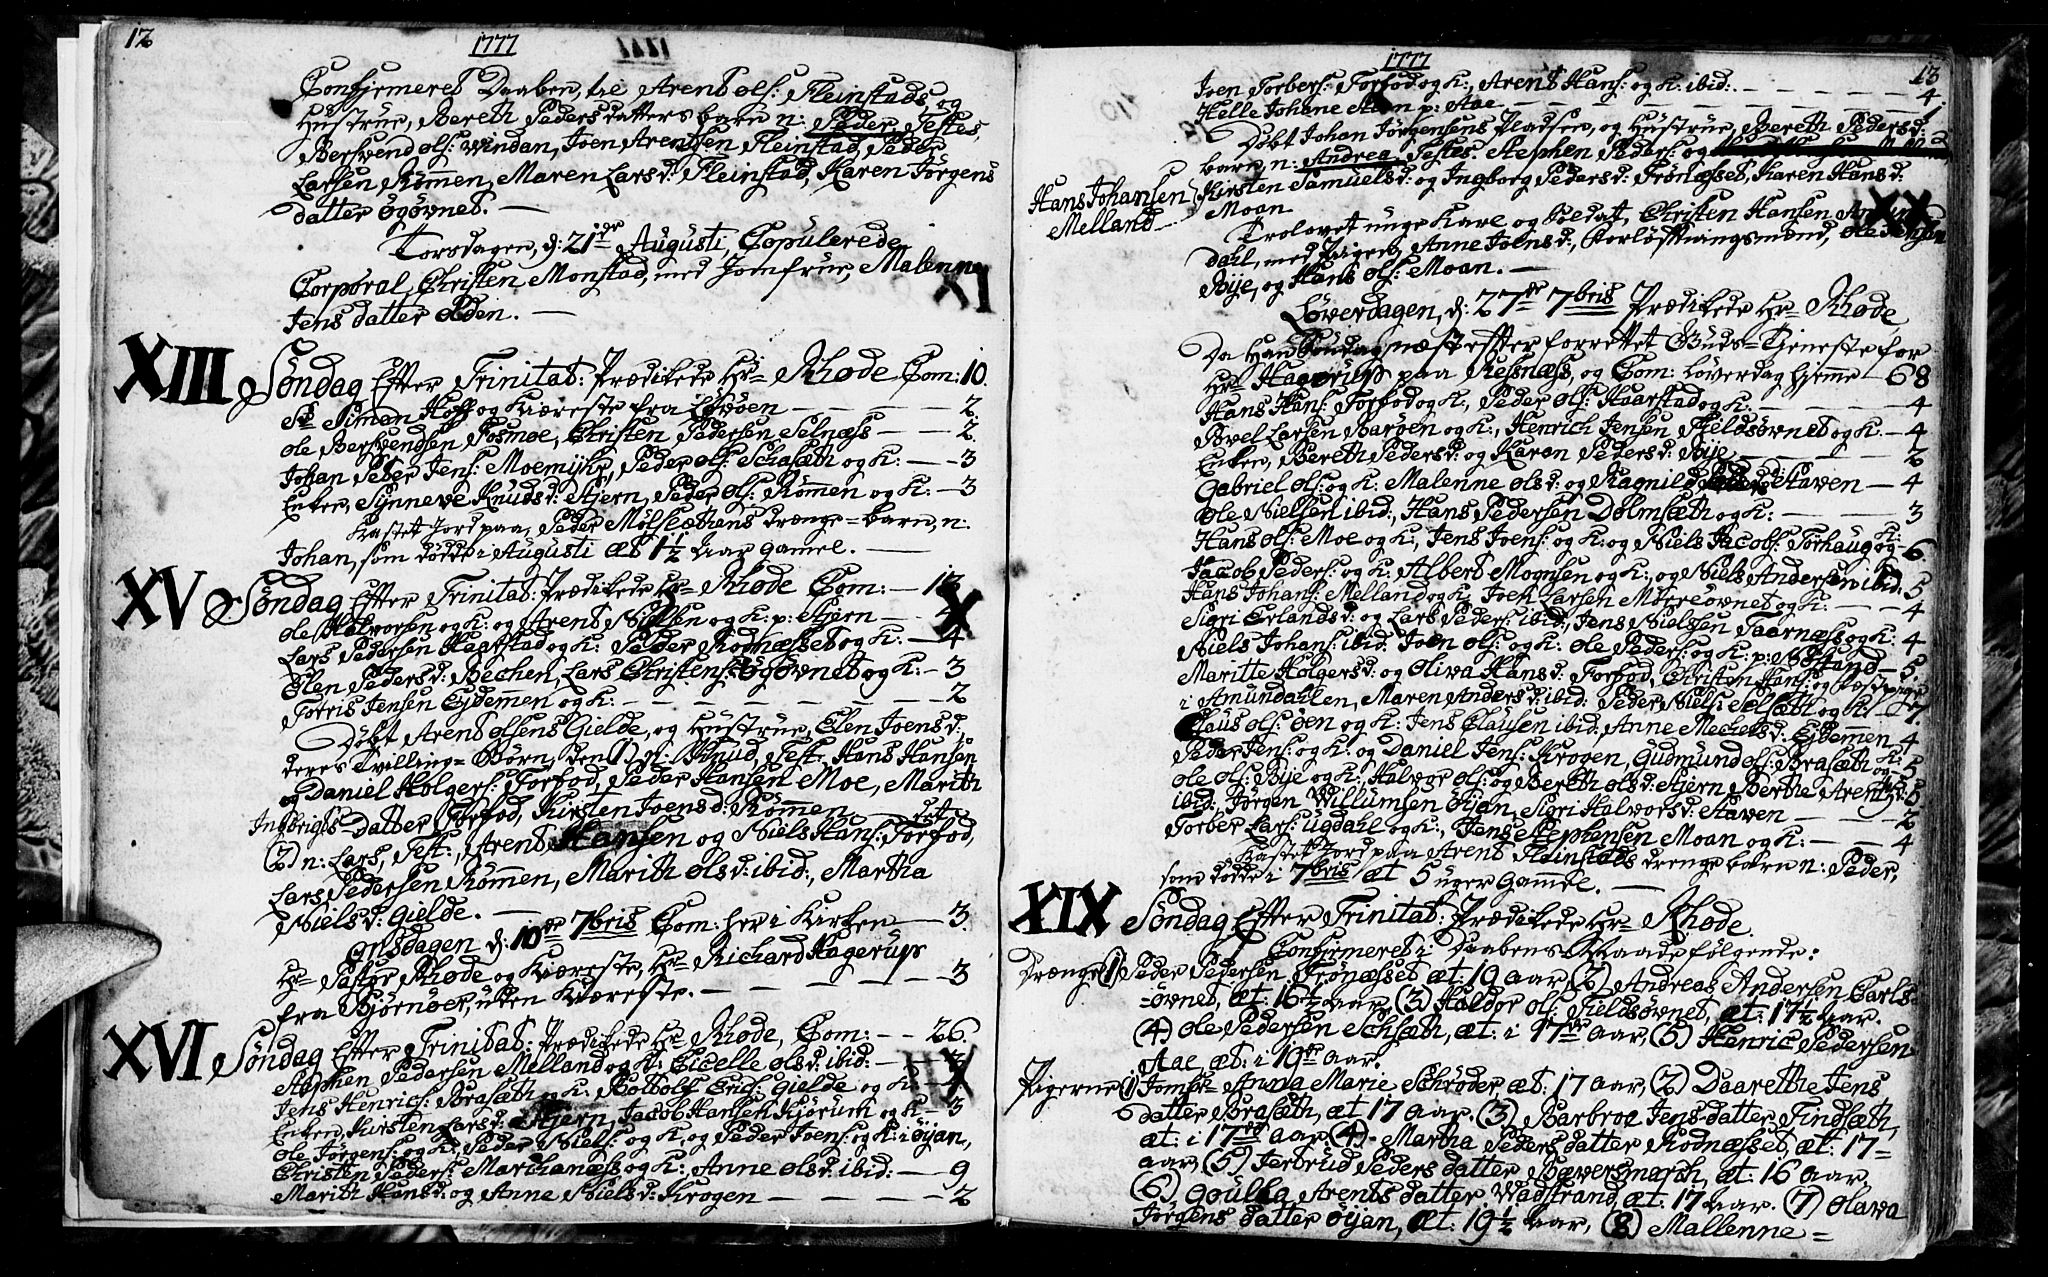 12
1777
Confirmeret Daaben, til Arent Ols: Fleinstads, og
Hustrue, Bereth Pedersdatters barn n: Peder. Testes,
Bersvend Ols: Vindan, Joen Arentsen Fleinstad, Peder
Larsen Rømmen, Maren Larsd: Fleinstad, Karen Jørgens
datter Øgøvnet. —
Torsdagen, d: 21de Augusti, Copulerede
Corporal, Christen Monstad, med Jomfrue, Malenne
Jens datter Øden. —
XIII Søndag Efter Trinitat: Prædikede Hr= Rhode Com: 10.
Sr Simon Hoff og Kiæreste fra Løvøen — 2.
Ole Bersvendsen Fosmoe, Christen Pedersen Selnæss — 2.
Johan Peder Jens: Moemyhr, Peder Ols: Schasæth og K: — 3
Enken, Synneve Knudsd: Stjern, Peder Ols: Rømmen og K: — 3
Kastet Jord paa, Peder Mølslæthens drenge=barn, n:
Johan, som døde i Augusti æt 1½ Aar gamel. —
XV Søndag Efter Trinitat: Prædikede Hr= Rhode Com: — 13
Ole Halvorsen og K: og Arent Nielsen og K: p: Stjern — 4
Lars Pedersen Hagrstad og K: Peder Rodnæsset og K: — 4
Elen Pedersd: Bechen, Lars Christens: Øgøvnet og K: — 3
Torris Jensen Ejdemen og K: — 2
Døbt Arent Olsens Gielde, og Hustrue, Elen Joensd:,
deres Tvilling= Børn, den (1) n: Knud, Test: Hans Hansen
og Daniel Holgers: Forfod, Peder Hansen Moe, Marith
Ingbrigts Datter Forfod, Kirsten Joensd: Rømmen, det
(2) n: Lars, Test:, Arent Hansen og Niels Hans: Forfod,
Lars Pedersen Rømmen, Marith Olsd: ibid:, Martha
Nielsd: Gielde. —
Onsdagen d: 10de 7bris Com: her i Kirken — 3.
Hr= Pastor Rhode og Kiæreste, Hr= Richard Hagerup
fra Bjørnøer, uden Kiæreste. — 3
XVI Søndag Efter Trinitat: Prædikede Hr= Rhode, Com: — 26.
Stephen Pedersen Melland og K: Cicelle Olsd: ibid: —
Jens Henrics: Brasæth og K: Botholf Erics: Gielde og K: —
Enken, Kirsten Larsd: Stjern, Jacob Hansen Kjørum og K: — 3
Ole Jørgens: og K: Peder Niels: og K, og Peder Joens: og K: i Øijan,
Christen Peders: Marchanæss og K: Anne Olsd: ibid: — 9
Marith Hansd: og Anne Nielsd: Krogen — 2
1777
13
Joen Torbers: Forfod og K:, Arent Hans: og K: ibid: — 4
Helle Johane Steen p: Aae — 1.
Døbt Johan Jørgensens Pladsen, og Hustrue, Bereth Pedersd:
barn, n: Andrea. Testes. Stephen Peders: og
Hans Johansen
Melland
Kirsten Samuelsd: og Ingborg Pedersd: Trønæsset, Karen Hansd:
Moan
Trolovet unge Karl og Soldat, Christen Hansen Amun-
dahl, med Pigen, Anne Joensd:, Forløftningsmænd, Ole Jensen
Bije, og Hans Ols: Moan. —
Løverdagen, d: 27de 7bris Prædikede Hr= Rhode,
Da Han Søndag næst efter forrettet Guds=Tjeneste for
Hr= Hagerup paa Ressnæss, og Com: Løverdag hjemme — 68
Hans Hans: Forfod og K:, Peder Ols: Haarstad og K: — 4
Povel Larsen Barøen og K:, Henrich Jensen Fieldsøvnet og K. — 4
Enken, Bereth Pedersd: og Karen Pedersd: Bije — 2
Gabriel Ols: og K: Malenne Olsd: og Ragnild Staven — 4
Ole Nielsen ibid:, Hans Pedersen Dolmsæth og K: — 3
Hans Ols: Moe og K:, Jens Joens: og K: og Niels Jacobs: Torhaug og K: — 6
Jacob Peders: og K: Albert Mognsen og K:, og Niels Andersen ibid. 5
Hans Johans: Melland og K, Joen Larsen Møereøvnet og K: — 4
Sigri Erlandsd: og Lars Peders: ibid., Jens Nielssen Taarnæss og K: 4
Niels Johans: ibid: Joen Ols: og K: Ole Peders: og K: p: Møstand — 5.
Maritte Holgersd: og Oliva Hansd: Forfod, Christen Hans: og
i Amundahlen, Maren Andersd: ibid: Peder Niels: Selsæth og K: — 7
Claus Ols: Øen og K: Jens Clausen ibid: Anne Mechelsd: Ejdemen — 4
Peder Jens: og K: og Daniel Jens: Krogen, Gudmund Ols: Brasæth og K: — 5
Ole Ols: Bije og K: Halvor Ols: og Bereth Olsd: Stjern Berthe Arentsd:
ibid: Jørgen Villumsen Øijan, Sigri Halvorsd: Staven — 2
Torber Lars: Ugdahl og K:, Jens Stephensen Moan og K: — 4
Kastet Jord paa Arent Fleinstads drenge barn n: Peder,
som døde i 7bris æt 5 uger Gamel. —
XIX Søndag Efter Trinitat: Prædikede Hr= Rhode.
Confirmeret i Daabens Naade følgende:
Drenge (1) Peder Pedersen Trønæsset æt: 19 aar (2) Andreas Andersen Carls-
=øvnet, æt: 16½ aar, (3) Haldor Ols: Fieldsøvnet, æt: 17½ Aar.
(4) Ole Pedersen Schsæth, æt: i 17de aar, (5) Henric Pedersen
Aae, æt: i 19de aar.
Pigerne (1) Jomfr: Anna Marie Schrøder, æt: 17 aar, (2) Daarethe Jens
datter Brasæth, æt 17 aar. (3) Barbroe Jens datter Findsæth,
æt: i 17de aar (4) Martha Peders datter Rodnæsset, æt: 17=
aar, (5) Jertrud Peders datter Bævers march, æt: 16 aar.
(6) Goulla Arents datter Vadstrand, æt: 17 aar. (7) Olava
Jørgens datter Øijan, æt: 19½ Aar, (8) Mallenne=